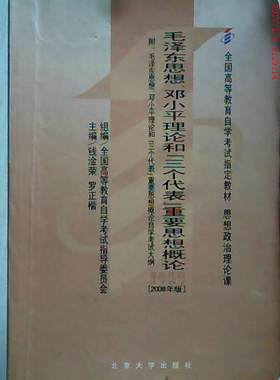 全国高等教育自学考试指定教材 思想政治理论课
毛泽东思想、邓小平理论和“三个代表”重要思想概论
附：毛泽东思想、邓小平理论和“三个代表”重要思想概论自学考试大纲
[2008年版]
组编／全国高等教育自学考试指导委员会
主编／钱淦荣 罗正楷
北京大学出版社